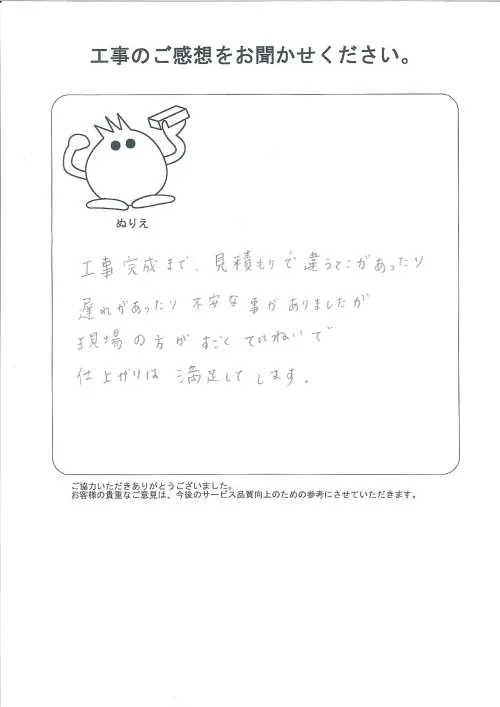 工事のご感想をお聞かせください。
ぬりえ
工事完成まで、見積もりで違うとこがあったり
遅れがあったり不安な事がありましたが
現場の方がすごくていねいで
仕上がりは満足してします.
ご協力いただきありがとうございました。
お客様の貴重なご意見は、今後のサービス品質向上のための参考にさせていただきます。